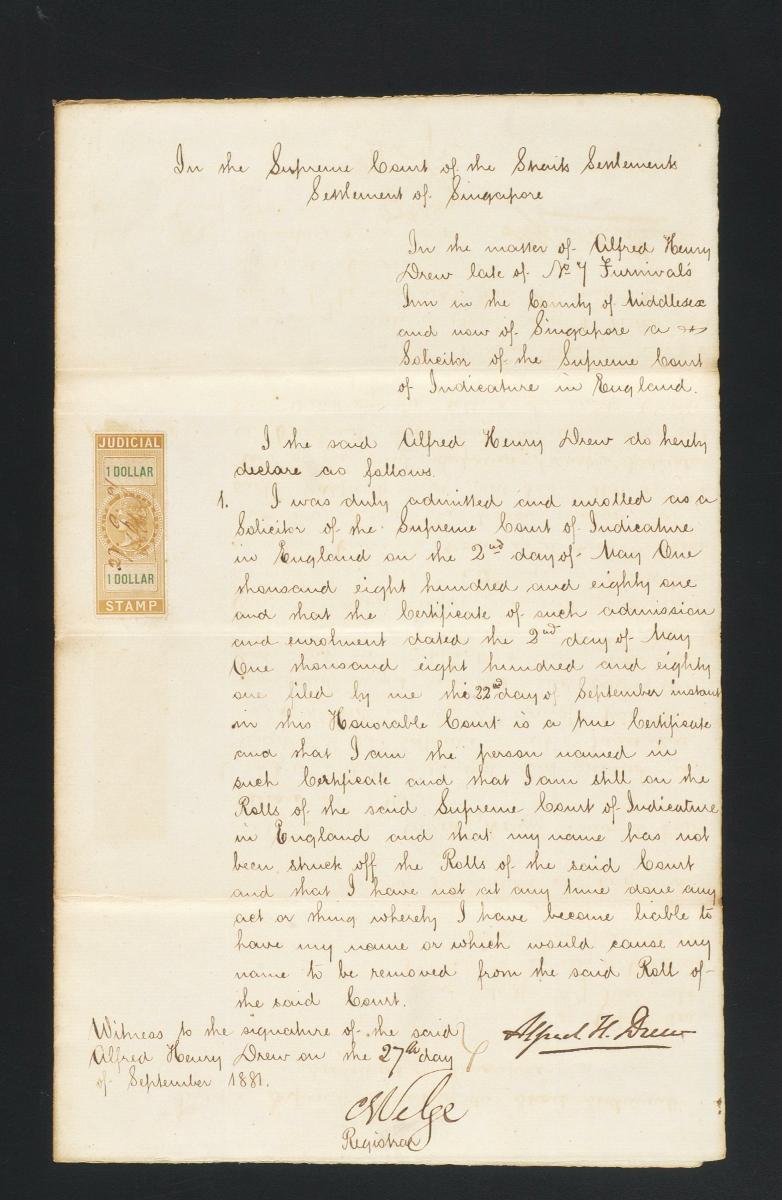 In the Supreme Court of the Straits Settlements
Settlement of Singapore
In the matter of Alfred Henry
Drew late of No 7 Furnival's
Inn in the County of Middlesex
and now of Singapore a
Solicitor of the Supreme Court
of Judicature in England.
JUDICIAL
1 DOLLAR
1 DOLLAR
STAMP
I the said Alfred Henry Drew do hereby
declare as follows.
1. I was duly admitted and enrolled as a
Solicitor of the Supreme Court of Judicature
in England on the 2nd day of May One
thousand eight hundred and eighty one
and that the Certificate of such admission
and enrolment dated the 2nd day of May
One thousand eight hundred and eighty
one filed by me the 22nd day of September instant
in this Honorable Court is a true Certificate
and that I am the person named in
such Certificate and that I am still on the
Rolls of the said Supreme Court of Judicature
in England and that my name has not
been struck off the Rolls of the said Court
and that I have not at any time done any
act or thing whereby I have become liable to
have my name or which would cause my
name to be removed from the said Roll of
the said Court.
Witness to the signature of the said
Alfred Henry Drew on the 27th day
of September 1881.
Alfred H. Drew
Registrar